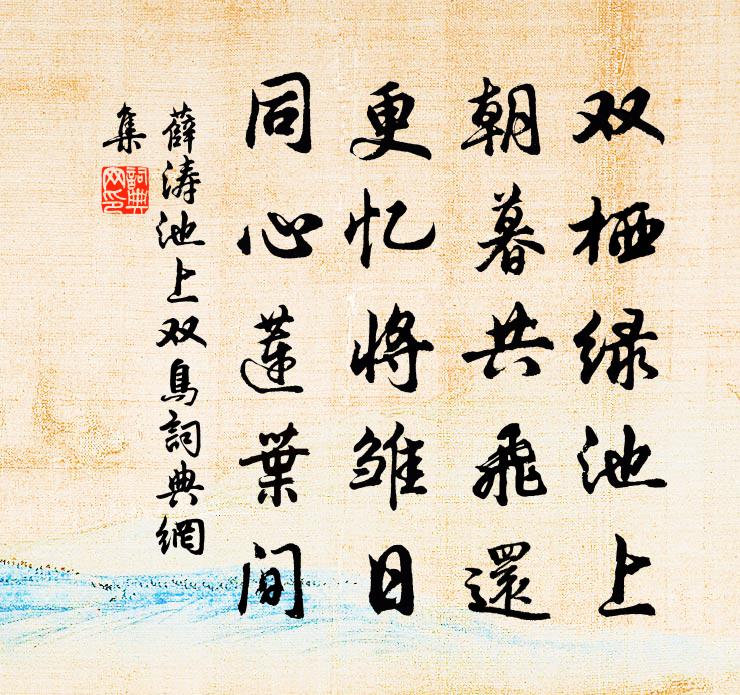 双栖绿池上
朝暮共飛還
更忆將雏日
同心莲葉间
薛涛池上双鳥詞典網
集
詞典
网印